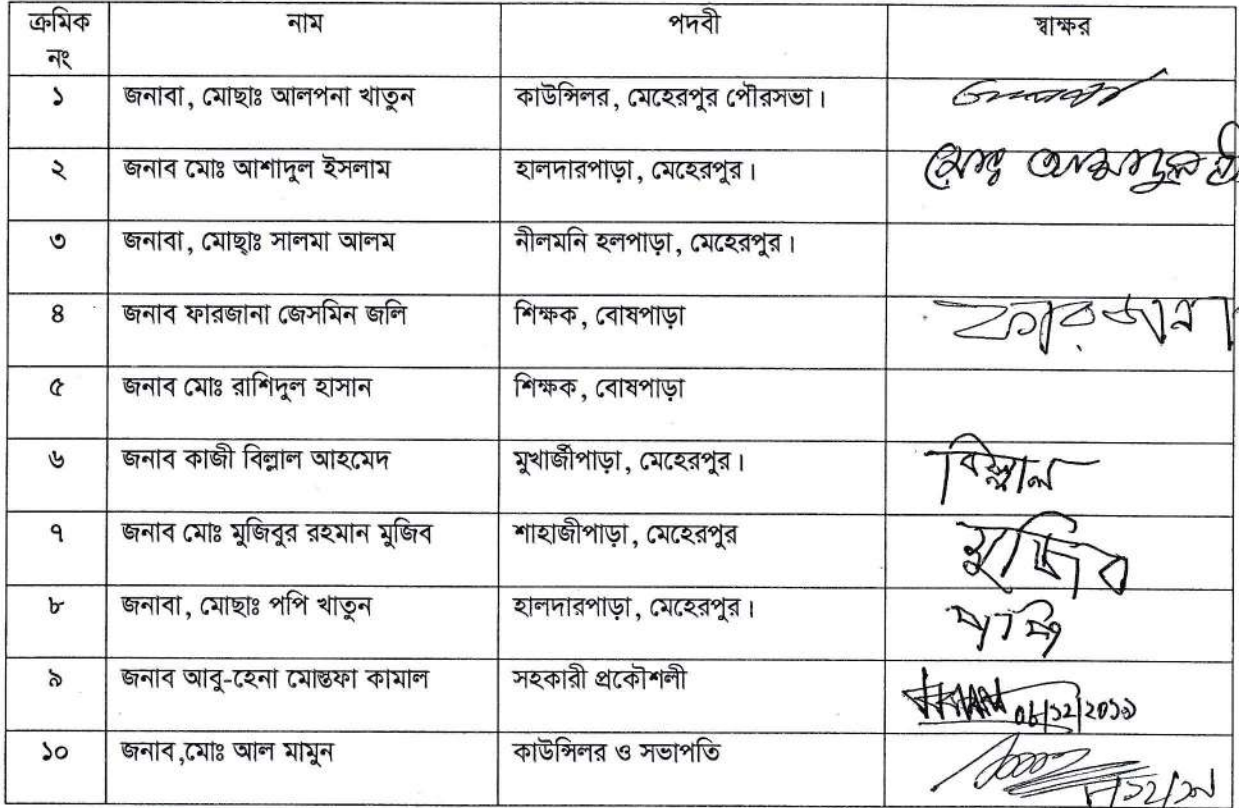 ক্রমিক নং নাম পদবী স্বাক্ষর
১ জনাবা, মোছাঃ আলপনা খাতুন কাউন্সিলর, মেহেরপুর পৌরসভা।
২ জনাব মোঃ আশাদুল ইসলাম হালদারপাড়া, মেহেরপুর। মোঃ আশাদুল ই
৩ জনাবা, মোছাঃ সালমা আলম নীলমনি হলপাড়া, মেহেরপুর।
৪ জনাব ফারজানা জেসমিন জলি শিক্ষক, বোষপাড়া ফারজানা
৫ জনাব মোঃ রাশিদুল হাসান শিক্ষক, বোষপাড়া
৬ জনাব কাজী বিল্লাল আহমেদ মুখার্জীপাড়া, মেহেরপুর। বিল্লাল
৭ জনাব মোঃ মুজিবুর রহমান মুজিব শাহাজীপাড়া, মেহেরপুর মুজিব
৮ জনাবা, মোছাঃ পপি খাতুন হালদারপাড়া, মেহেরপুর। পপি
৯ জনাব আবু-হেনা মোস্তফা কামাল সহকারী প্রকৌশলী
১০ জনাব,মোঃ আল মামুন কাউন্সিলর ও সভাপতি